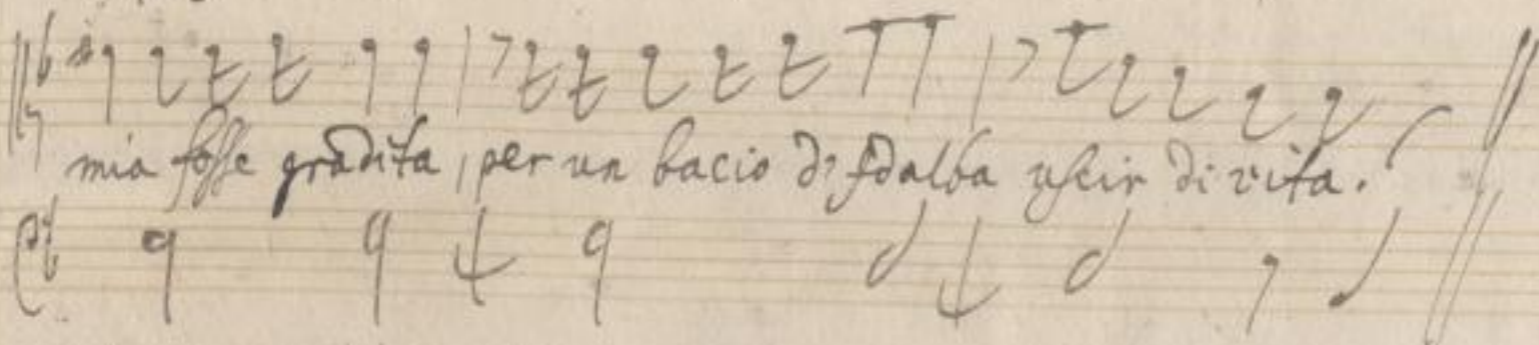 mia fosse gradita, per un bacio d'Idalba uscir di vita.